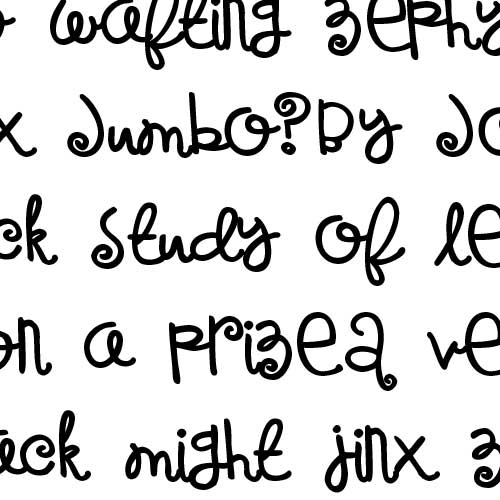 wafting zephy
x Jumbo?By Jo
ck study of le
on a prized ve
ack might jinx z